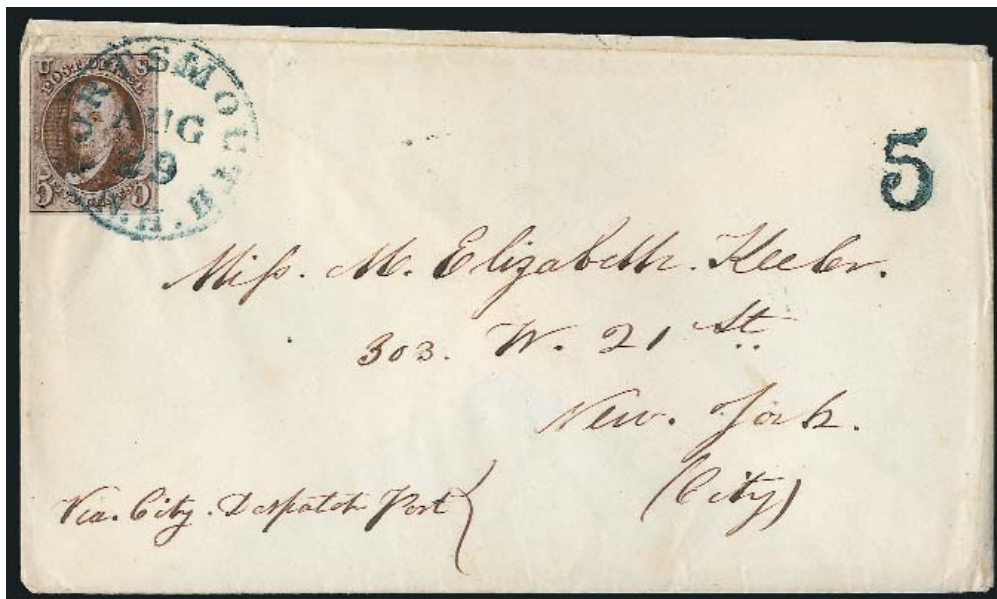 U S
POST OFFICE
5 5
PORTSMOUTH N.H.
AUG
29
5
Miss. M. Elizabeth. Keeler.
303. W. 21 St.
New. York.
(City)
Via. City. Despatch Post